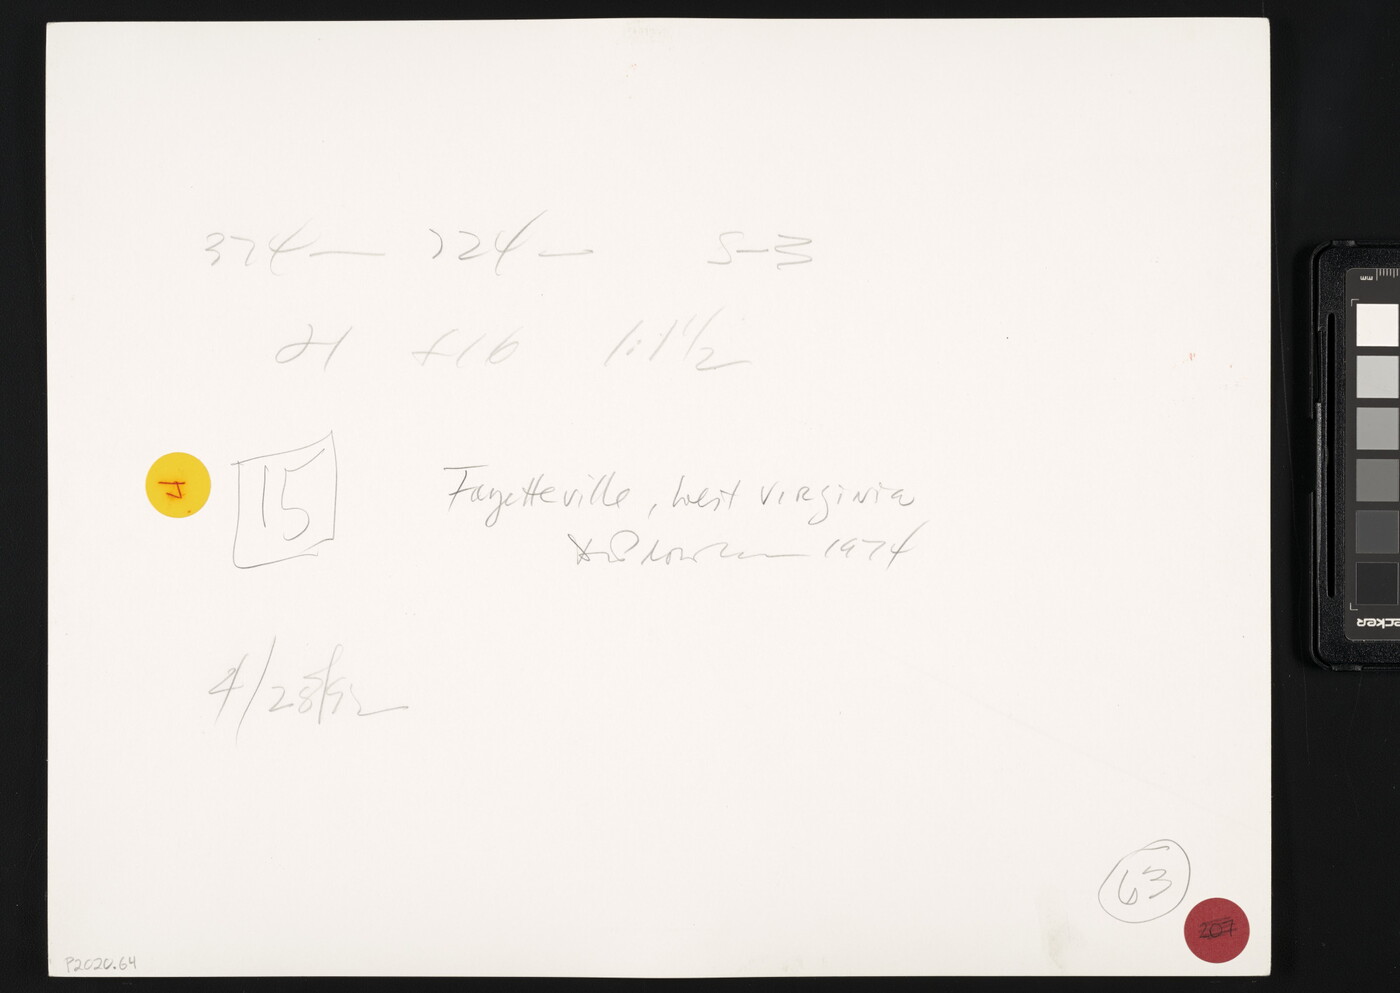 374— 724— S-3
21 f16 1:1 1/2
J
15
Fayetteville, West Virginia
1974
4/28/92
63
207
P2020.64
mm
ecker